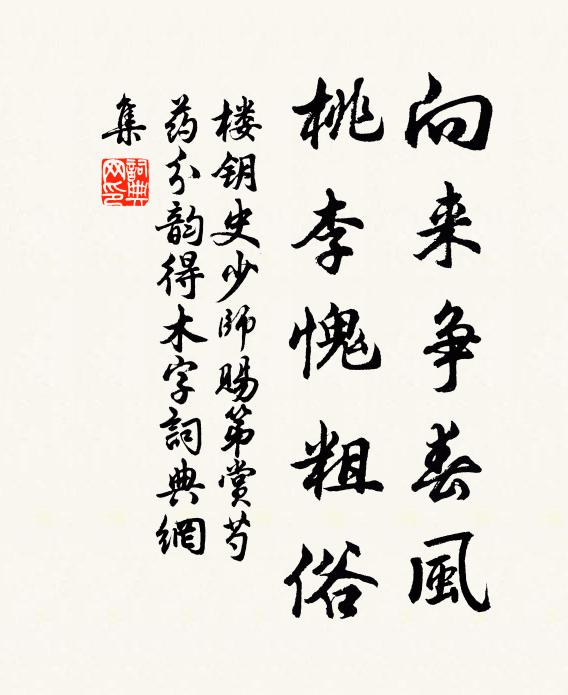 向来争春風
桃李愧粗俗
楼钥史少師賜第赏芍
药分韵得木字詞典網
集
詞典
网印